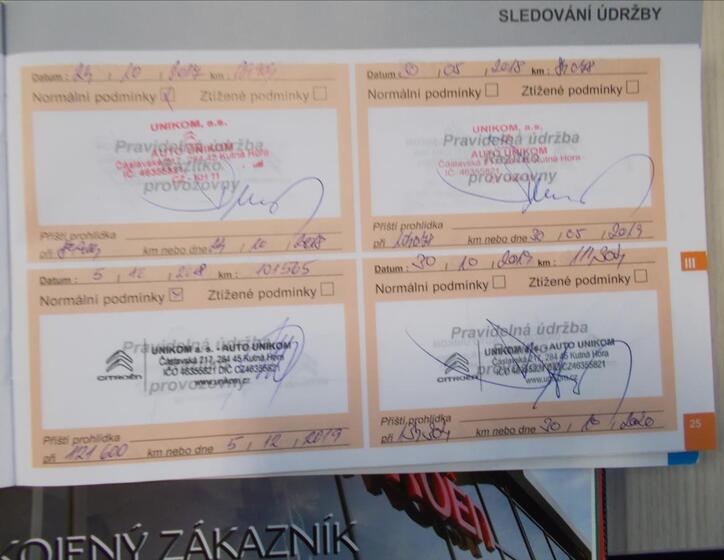 SLEDOVÁNÍ ÚDRŽBY
Datum : 24 , 10 , 2017 km :
Normální podmínky Ztížené podmínky
Pravidelná údržba
Razítko
provozovny
UNIKOM, a.s.
AUTO UNIKOM
Čáslavská 217, 284 45 Kutná Hora
IČ: 46355821
CZ - KH 11
Příští prohlídka
při km nebo dne 24 , 10 , 2018
Datum : 30 , 05 , 2018 km :
Normální podmínky Ztížené podmínky
Pravidelná údržba
Razítko
provozovny
UNIKOM, a.s.
AUTO UNIKOM
Čáslavská 217, 284 45 Kutná Hora
IČ: 46355821
Příští prohlídka
při km nebo dne 30 , 05 , 2019
Datum : 5 , 12 , 2018 km : 101565
Normální podmínky Ztížené podmínky
Pravidelná údržba
provozovny
CITROËN
UNIKOM a. s. - AUTO UNIKOM
Čáslavská 217, 284 45 Kutná Hora
IČO 46355821 DIČ CZ46355821
www.unikom.cz
Příští prohlídka
při 121 600 km nebo dne 5 , 12 , 2019
III
Datum : 30 , 10 , 2019 km :
Normální podmínky Ztížené podmínky
Pravidelná údržba
provozovny
CITROËN
UNIKOM a. s. - AUTO UNIKOM
Čáslavská 217, 284 45 Kutná Hora
IČO 46355821 DIČ CZ46355821
www.unikom.cz
Příští prohlídka
při km nebo dne 30 , 10 , 2020
25
KOJENÝ ZÁKAZNÍK